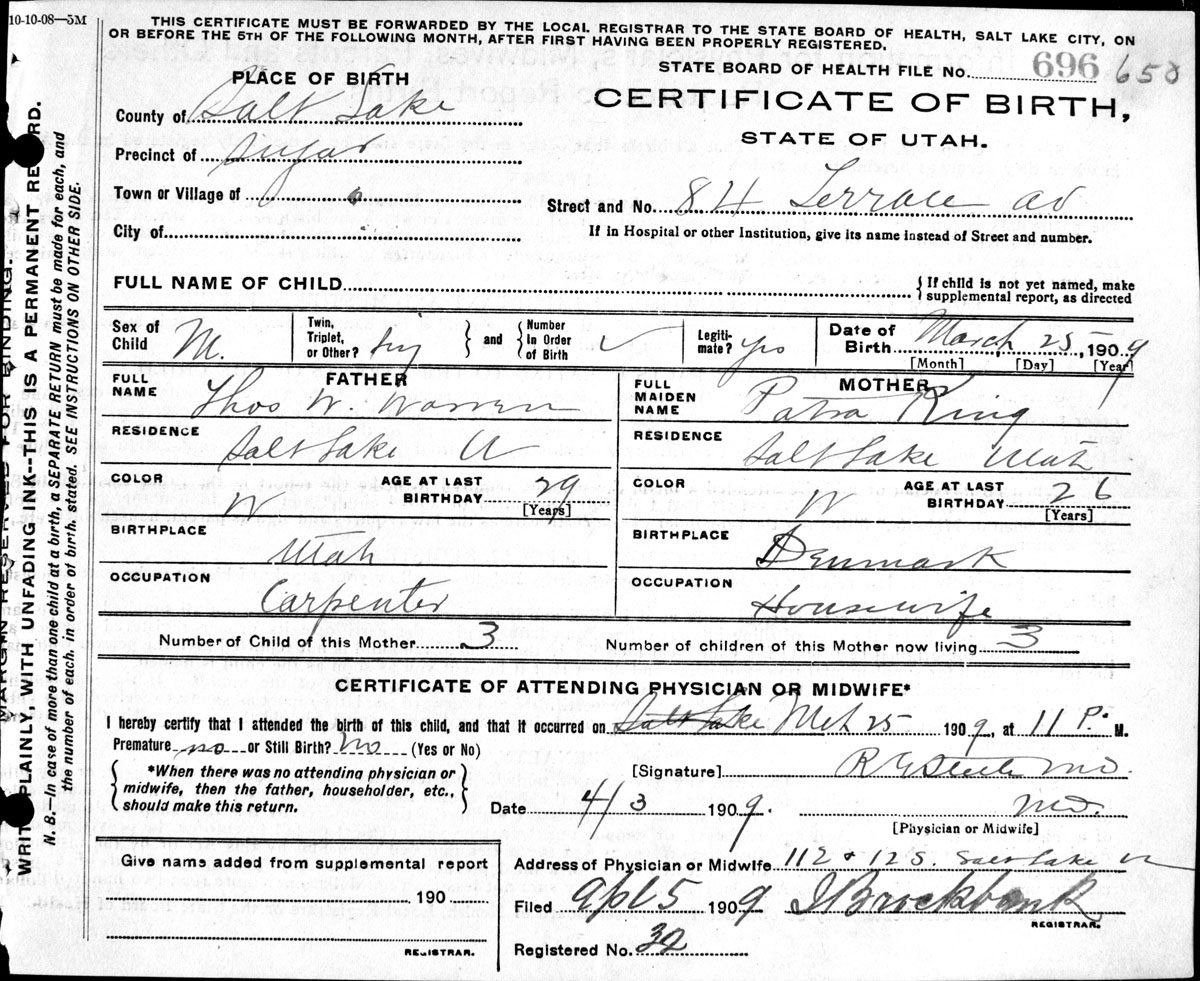 10-10-08—5M
THIS CERTIFICATE MUST BE FORWARDED BY THE LOCAL REGISTRAR TO THE STATE BOARD OF HEALTH, SALT LAKE CITY, ON
OR BEFORE THE 5TH OF THE FOLLOWING MONTH, AFTER FIRST HAVING BEEN PROPERLY REGISTERED.
PLACE OF BIRTH
STATE BOARD OF HEALTH FILE No. 696 658
County of Salt Lake
CERTIFICATE OF BIRTH,
STATE OF UTAH.
Precinct of Sugar
Town or Village of
Street and No. 84 Terrace av
City of
If in Hospital or other Institution, give its name instead of Street and number.
FULL NAME OF CHILD
{If child is not yet named, make
supplemental report, as directed
Sex of Child M.
Twin, Triplet, or Other? } and { Number In Order of Birth
Legiti- mate? yes
Date of Birth March 25, 1909
[Month] [Day] [Year]
FATHER
FULL NAME Thos W. Warren
MOTHER
FULL MAIDEN NAME Patra King
RESIDENCE Salt Lake U
RESIDENCE Salt Lake Utah
COLOR W AGE AT LAST BIRTHDAY 29 [Years]
COLOR W AGE AT LAST BIRTHDAY 26 [Years]
BIRTHPLACE Utah
BIRTHPLACE Denmark
OCCUPATION Carpenter
OCCUPATION Housewife
Number of Child of this Mother 3
Number of children of this Mother now living 3
CERTIFICATE OF ATTENDING PHYSICIAN OR MIDWIFE*
I hereby certify that I attended the birth of this child, and that it occurred on Salt Lake Mch 25 1909, at 11 P. M.
Premature no or Still Birth? no (Yes or No)
{*When there was no attending physician or
midwife, then the father, householder, etc.,
should make this return.}
[Signature] MD.
Date 4/3 1909. MD.
[Physician or Midwife]
Give name added from supplemental report
190
REGISTRAR.
Address of Physician or Midwife 112 Salt Lake
Filed Apl 5 1909 J Brockbank
REGISTRAR.
Registered No. 32
MARGIN RESERVED FOR BINDING.
WRITE PLAINLY, WITH UNFADING INK--THIS IS A PERMANENT RECORD.
N. B.—In case of more than one child at a birth, a SEPARATE RETURN must be made for each, and
the number of each, in order of birth, stated. SEE INSTRUCTIONS ON OTHER SIDE.